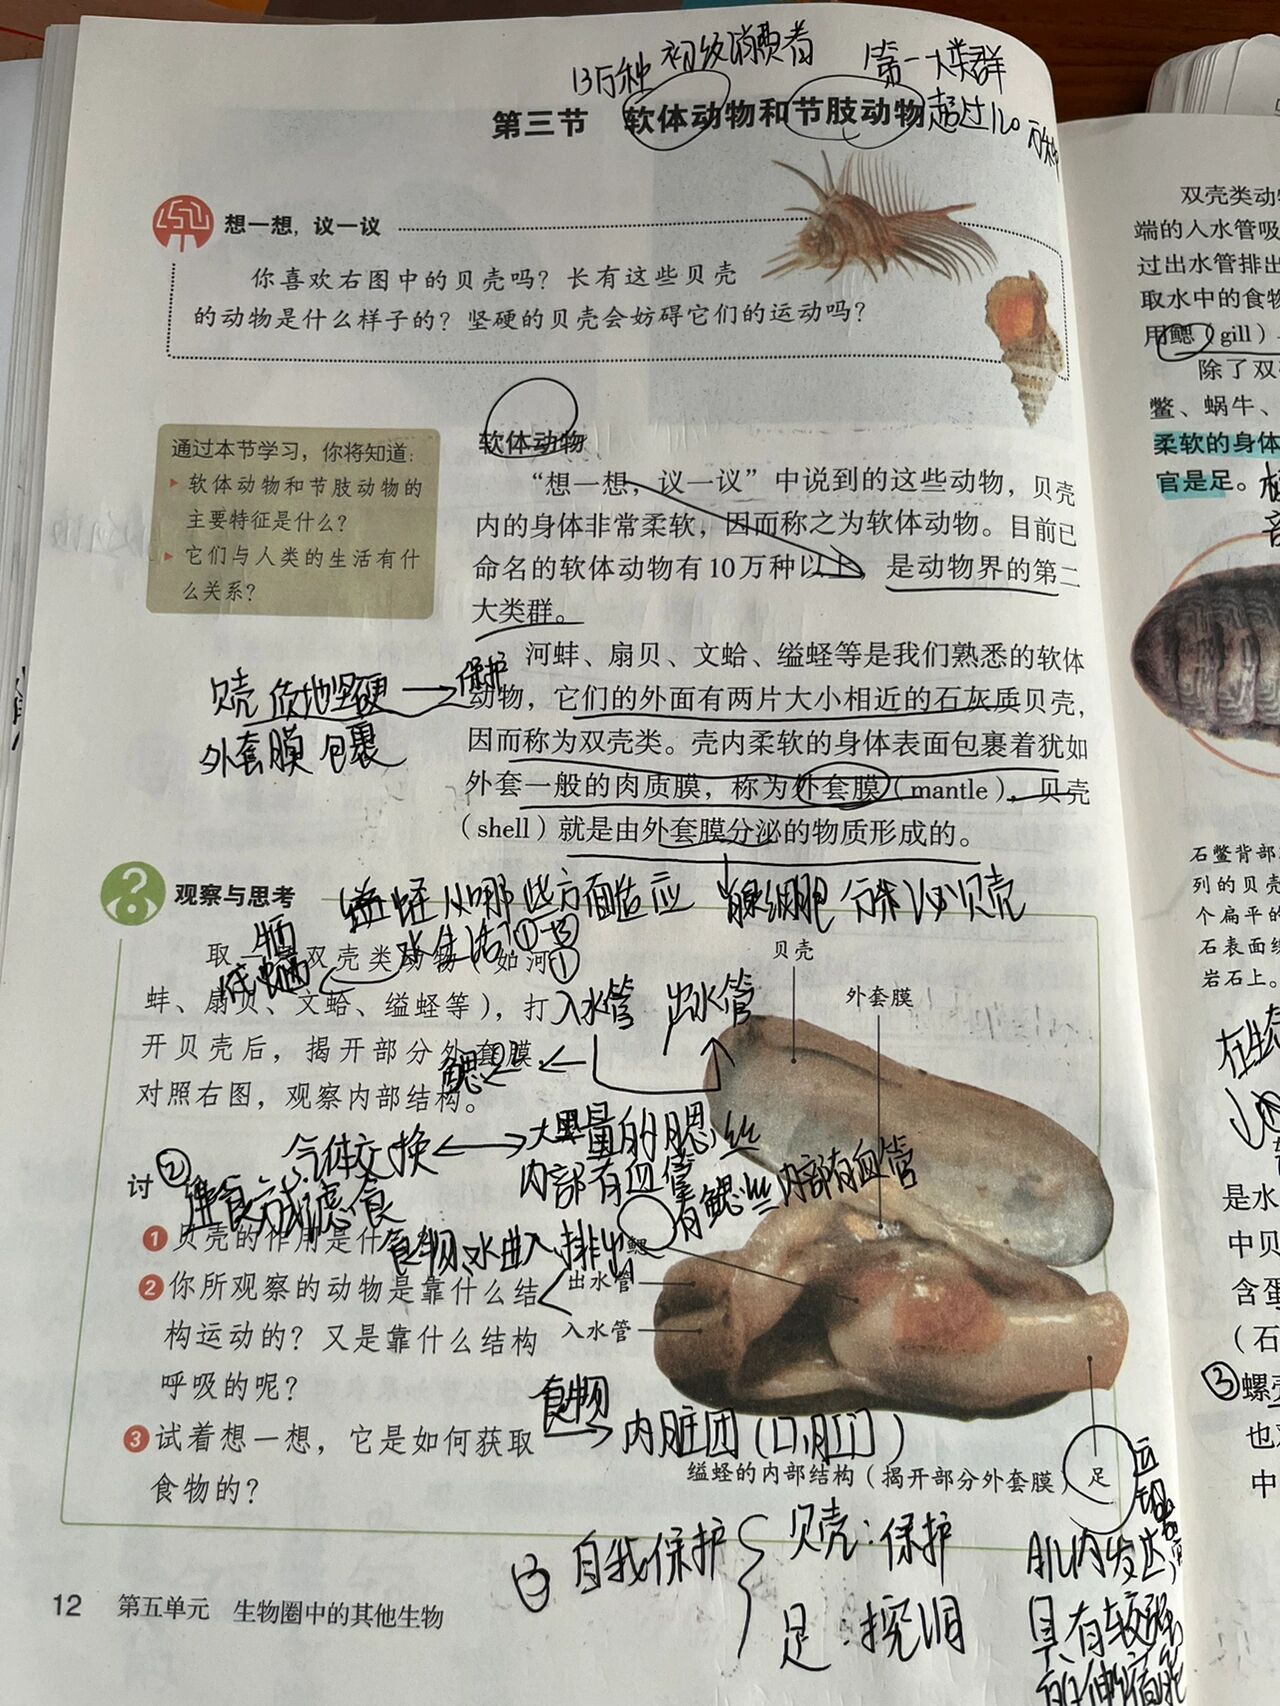 13万种 初级消费者 第一大类群
第三节 软体动物和节肢动物 超过120万种
想一想，议一议
你喜欢右图中的贝壳吗？长有这些贝壳
的动物是什么样子的？坚硬的贝壳会妨碍它们的运动吗？
通过本节学习，你将知道：
软体动物和节肢动物的
主要特征是什么？
它们与人类的生活有什
么关系？
软体动物
“想一想，议一议”中说到的这些动物，贝壳
内的身体非常柔软，因而称之为软体动物。目前已
命名的软体动物有10万种以上，是动物界的第二
大类群。
河蚌、扇贝、文蛤、缢蛏等是我们熟悉的软体
动物，它们的外面有两片大小相近的石灰质贝壳，
因而称为双壳类。壳内柔软的身体表面包裹着犹如
外套一般的肉质膜，称为外套膜（mantle），贝壳
（shell）就是由外套膜分泌的物质形成的。
贝壳 质地坚硬 保护
外套膜 包裹
观察与思考
缢蛏从哪些方面适应
水生生活？①-③
腺细胞 分泌贝壳
取 双壳类动物（如河
蚌、扇贝、文蛤、缢蛏等），打
开贝壳后，揭开部分外套膜，
对照右图，观察内部结构。
①
入水管 出水管
鳃
气体交换 大量的鳃丝
内部有血管
有鳃丝 内部有血管
讨
② 进食方式滤食
食物、水进入、排出
1 贝壳的作用是什
2 你所观察的动物是靠什么结
构运动的？又是靠什么结构
呼吸的呢？
3 试着想一想，它是如何获取
食物的？
贝壳
外套膜
鳃
出水管
入水管
足
食物 内脏团（口，肛门）
缢蛏的内部结构（揭开部分外套膜）
③ 自我保护
贝壳：保护
足：挖泥
肌肉发达，
具有较强
的伸缩能
12 第五单元 生物圈中的其他生物
双壳类动物
端的入水管吸
过出水管排出
取水中的食物
用鳃（gill）
除了双
鳖、蜗牛、
柔软的身体
官是足。
石鳖背部
列的贝壳
个扁平的
石表面缓
岩石上。
在生态
是水
中贝
含蛋
（石
③螺壳
也
中